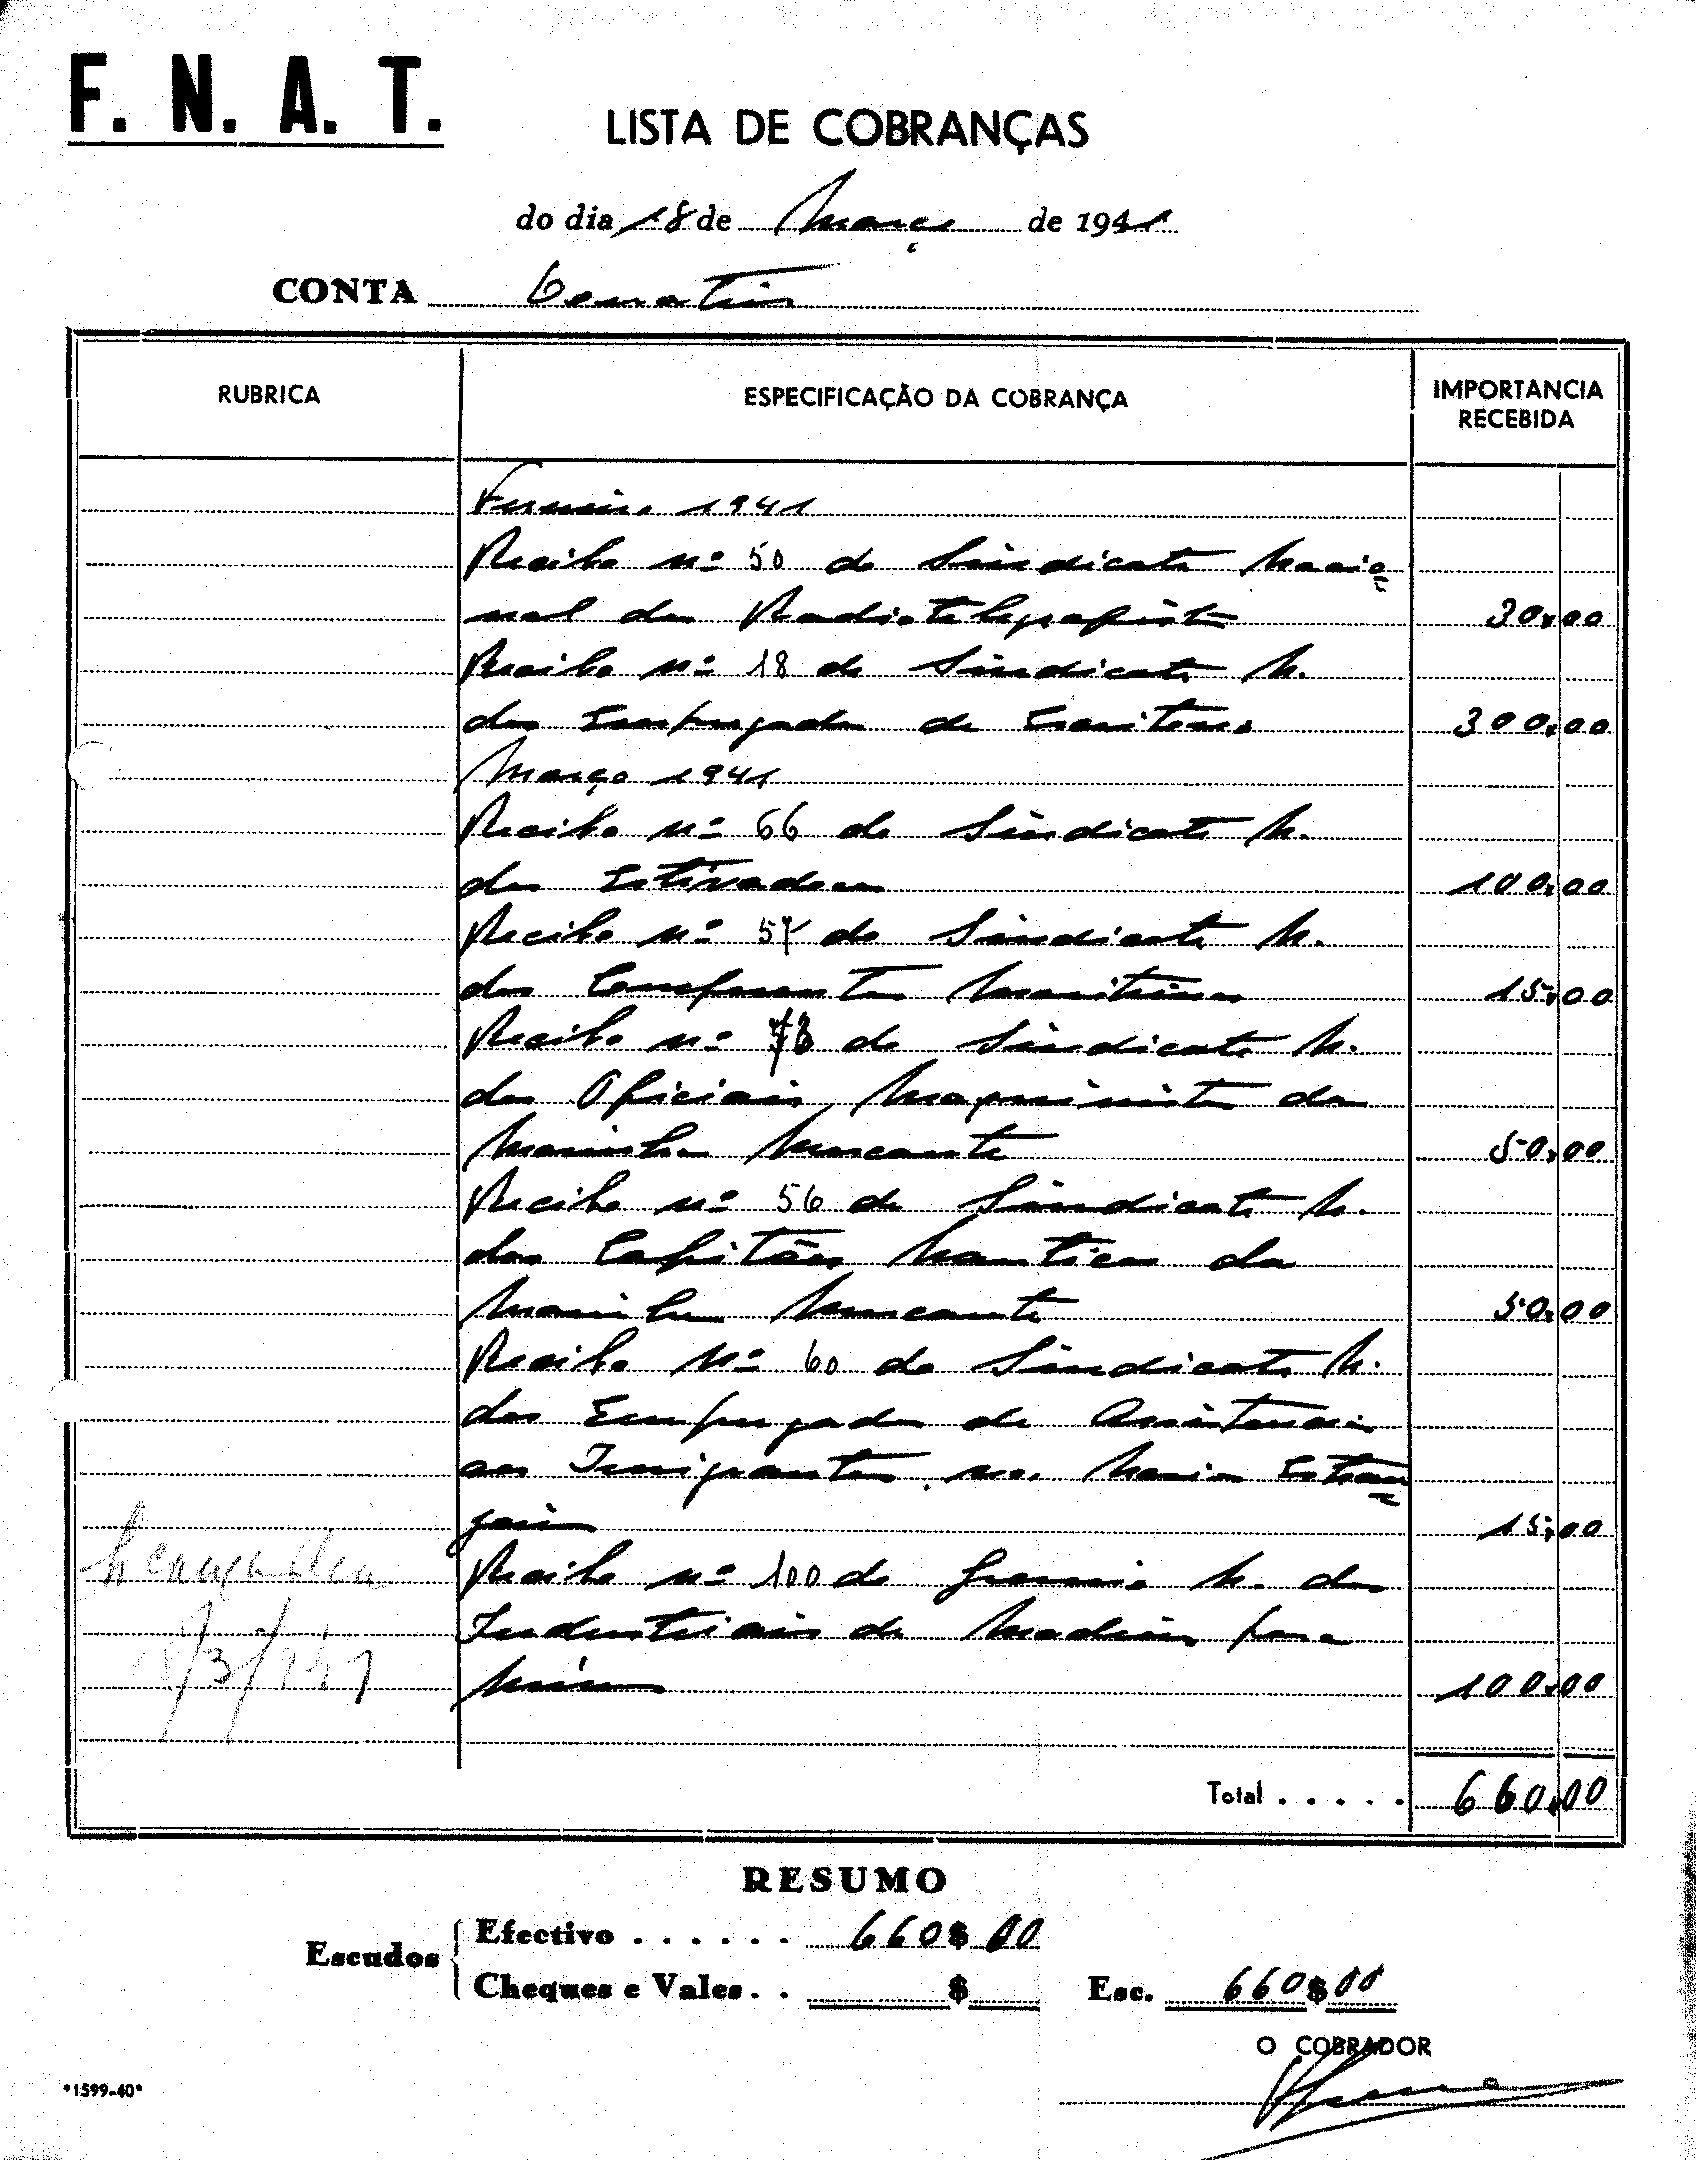 F. N. A. T.
LISTA DE COBRANÇAS
do dia 18 de Março de 1941
CONTA
RUBRICA
ESPECIFICAÇÃO DA COBRANÇA
IMPORTANCIA
RECEBIDA
Fevereiro 1941
Recibo nº 50 do Sindicato Nacio
nal dos Radiotelegrafistas 30,00
Recibo nº 18 do Sindicato N.
dos Empregados de Escritorio 300,00
Março 1941
Recibo nº 66 do Sindicato N.
dos Estivadores 100,00
Recibo nº 57 do Sindicato N.
dos Maritimos 15,00
Recibo nº do Sindicato N.
dos Oficiais Maquinistas da
Marinha Mercante 50,00
Recibo nº 56 do Sindicato N.
dos Capitães Nauticos da
Marinha Mercante 50,00
Recibo nº 60 do Sindicato N.
dos Empregados de Assistencia
aos Emigrantes nos Navios Estran
geiros 15,00
Recibo nº 100 do Gremio N. dos
Industriais de Madeiras para
Minas 100,00
Total ..... 660,00
RESUMO
Escudos
Efectivo ...... 660$00
Cheques e Vales.. $
Esc. 660$00
O COBRADOR
*1599-40*